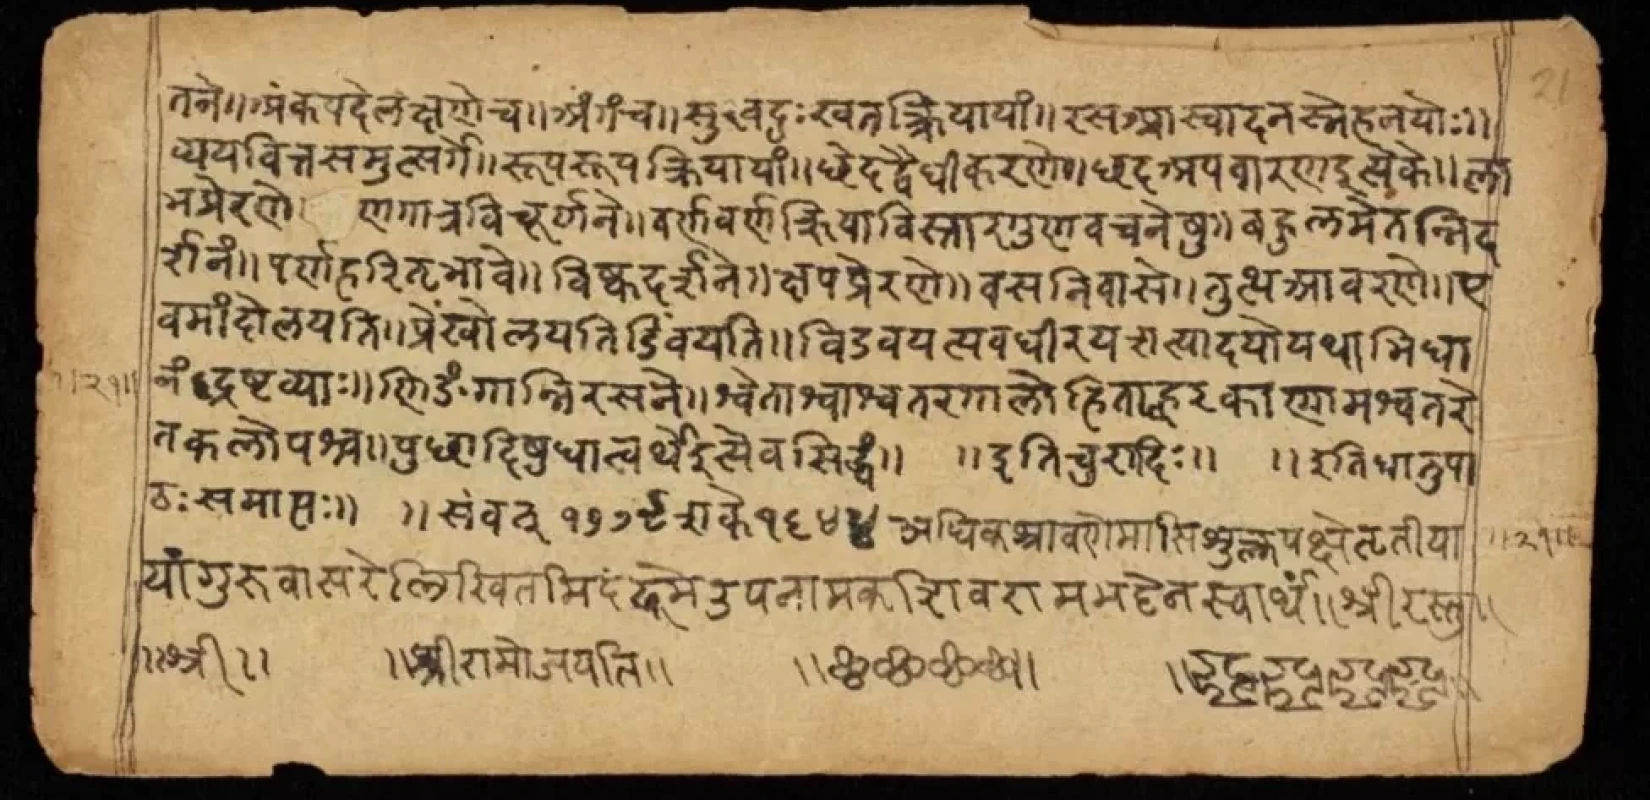 तने॥अंकपदेलक्षणेच॥अंगंच॥सुखदुःखतत्क्रियायां॥रसआस्वादनस्नेहनयोः॥
व्ययवित्तसमुत्सर्गे॥रूपरूपक्रियायां॥छेदद्वैधीकरणे॥छदअपवारणइत्येके॥ला
भप्रेरणे णगात्रविचूर्णने॥वर्णवर्णक्रियाविस्तारगुणवचनेषु॥बहुलमेतन्निद
र्शनं॥पर्णहरितभावे॥विष्कदर्शने॥क्षपप्रेरणे॥वसनिवासे॥तुत्थआवरणे॥ए
वमांदोलयति॥प्रेंखोलयतिडिंवयति॥विडवयत्यवधीरयत्यादयोयथाभिधा
नंद्रष्टव्याः॥णिङंगान्निरसने॥श्वेताश्वाश्वतरगालोहिताह्वरकाणामश्वतरे
तकलोपश्च॥पुछादिषुधात्वर्थइत्येवसिद्धं॥ ॥इतिचुरादिः॥ ॥इतिधातुपा
ठःसमाप्तः॥ ॥संवत् १७७९शके१६४४ अधिकश्रावणेमासिशुक्लपक्षेतृतीया
यांगुरुवासरेलिखितमिदं उपनामक भट्टेनस्वार्थं॥श्रीरस्तु॥
॥श्री॥ ॥श्रीरामोजयति॥
॥२१॥
॥२१॥
21